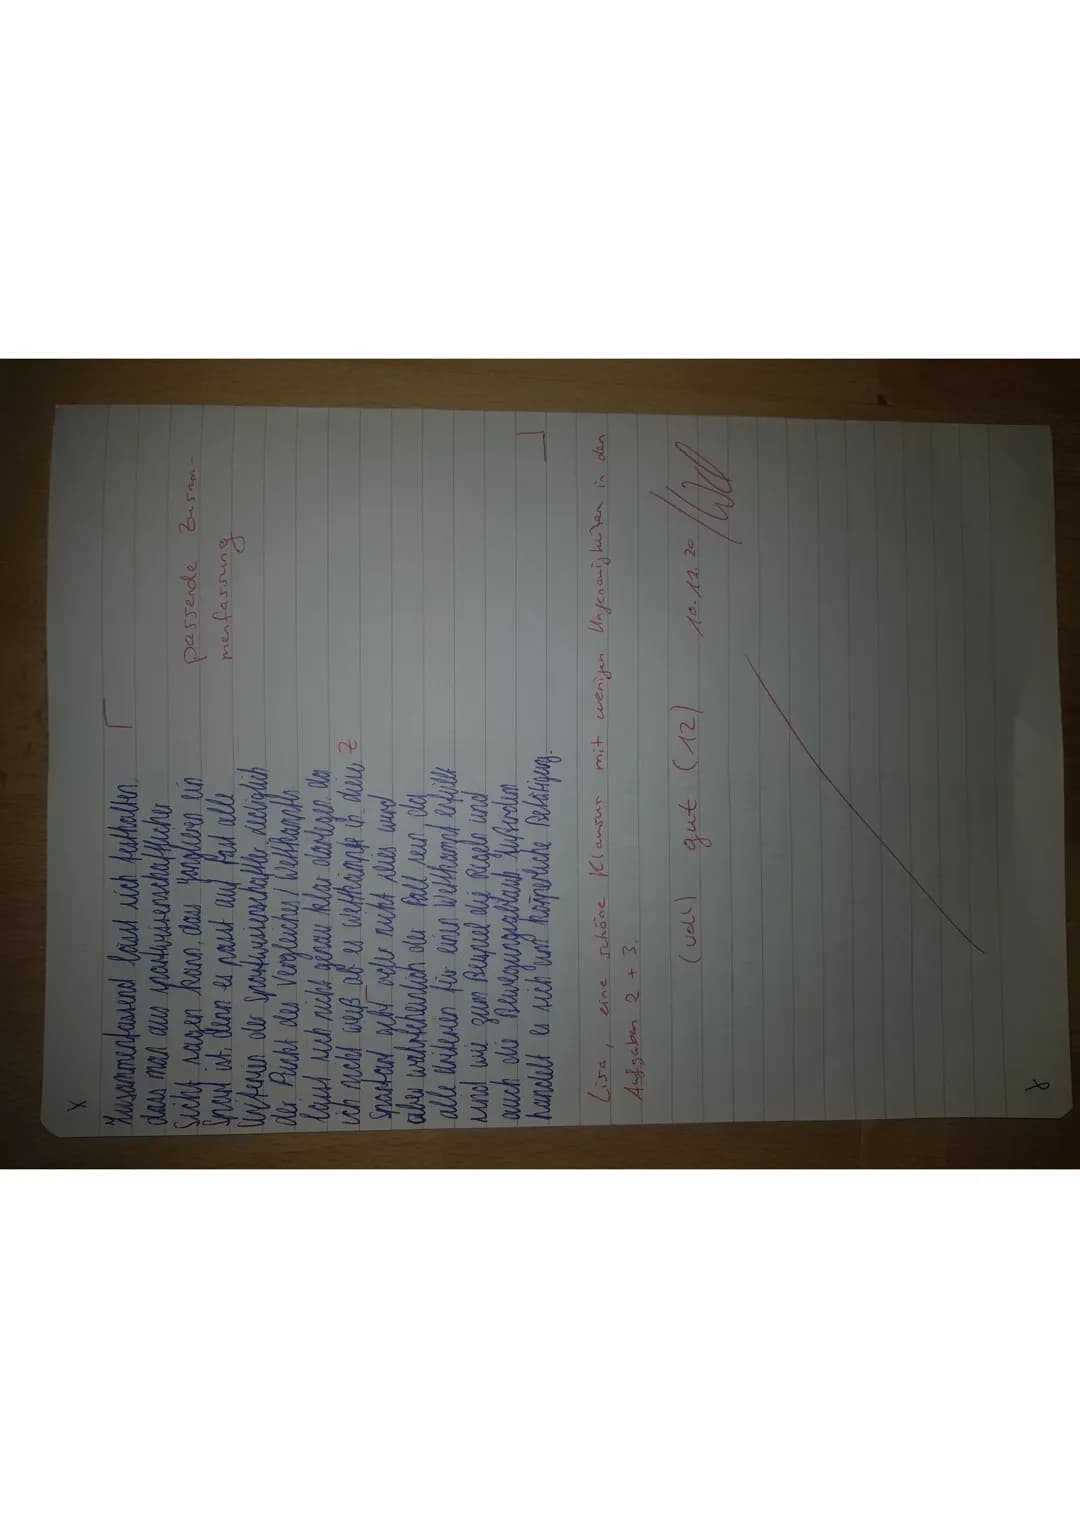 X
Zusammenfassend lässt sich festhalten,
dass man aus sportwissenschaftlicher
Sicht sagen kann, dass jonglieren ein
Sport ist denn es passt auf fast alle
Kriterien der Sportwissenschaftler lediglich
der Punkt des Vergleiches/Wettkampfes
lässt sich nicht genau klar darlegen da
ich nicht weiß ob es Wettkämpfe in dieser
Sportart gibt oder nicht dies wird
aber wahrscheinlich der Fall sein da
alle Kriterien für einen Wettkampf erfüllt
sind wie zum Beispiel die Regeln und
auch die Bewegungsabläufe
handelt es sich um körperliche Betätigung.
passende Zusam-
menfassung
Z
Lisa, eine schöne Klausur mit wenigen Ungenauigkeiten in den
Aufgaben 2 + 3.
gut (12) 10.12.20
8